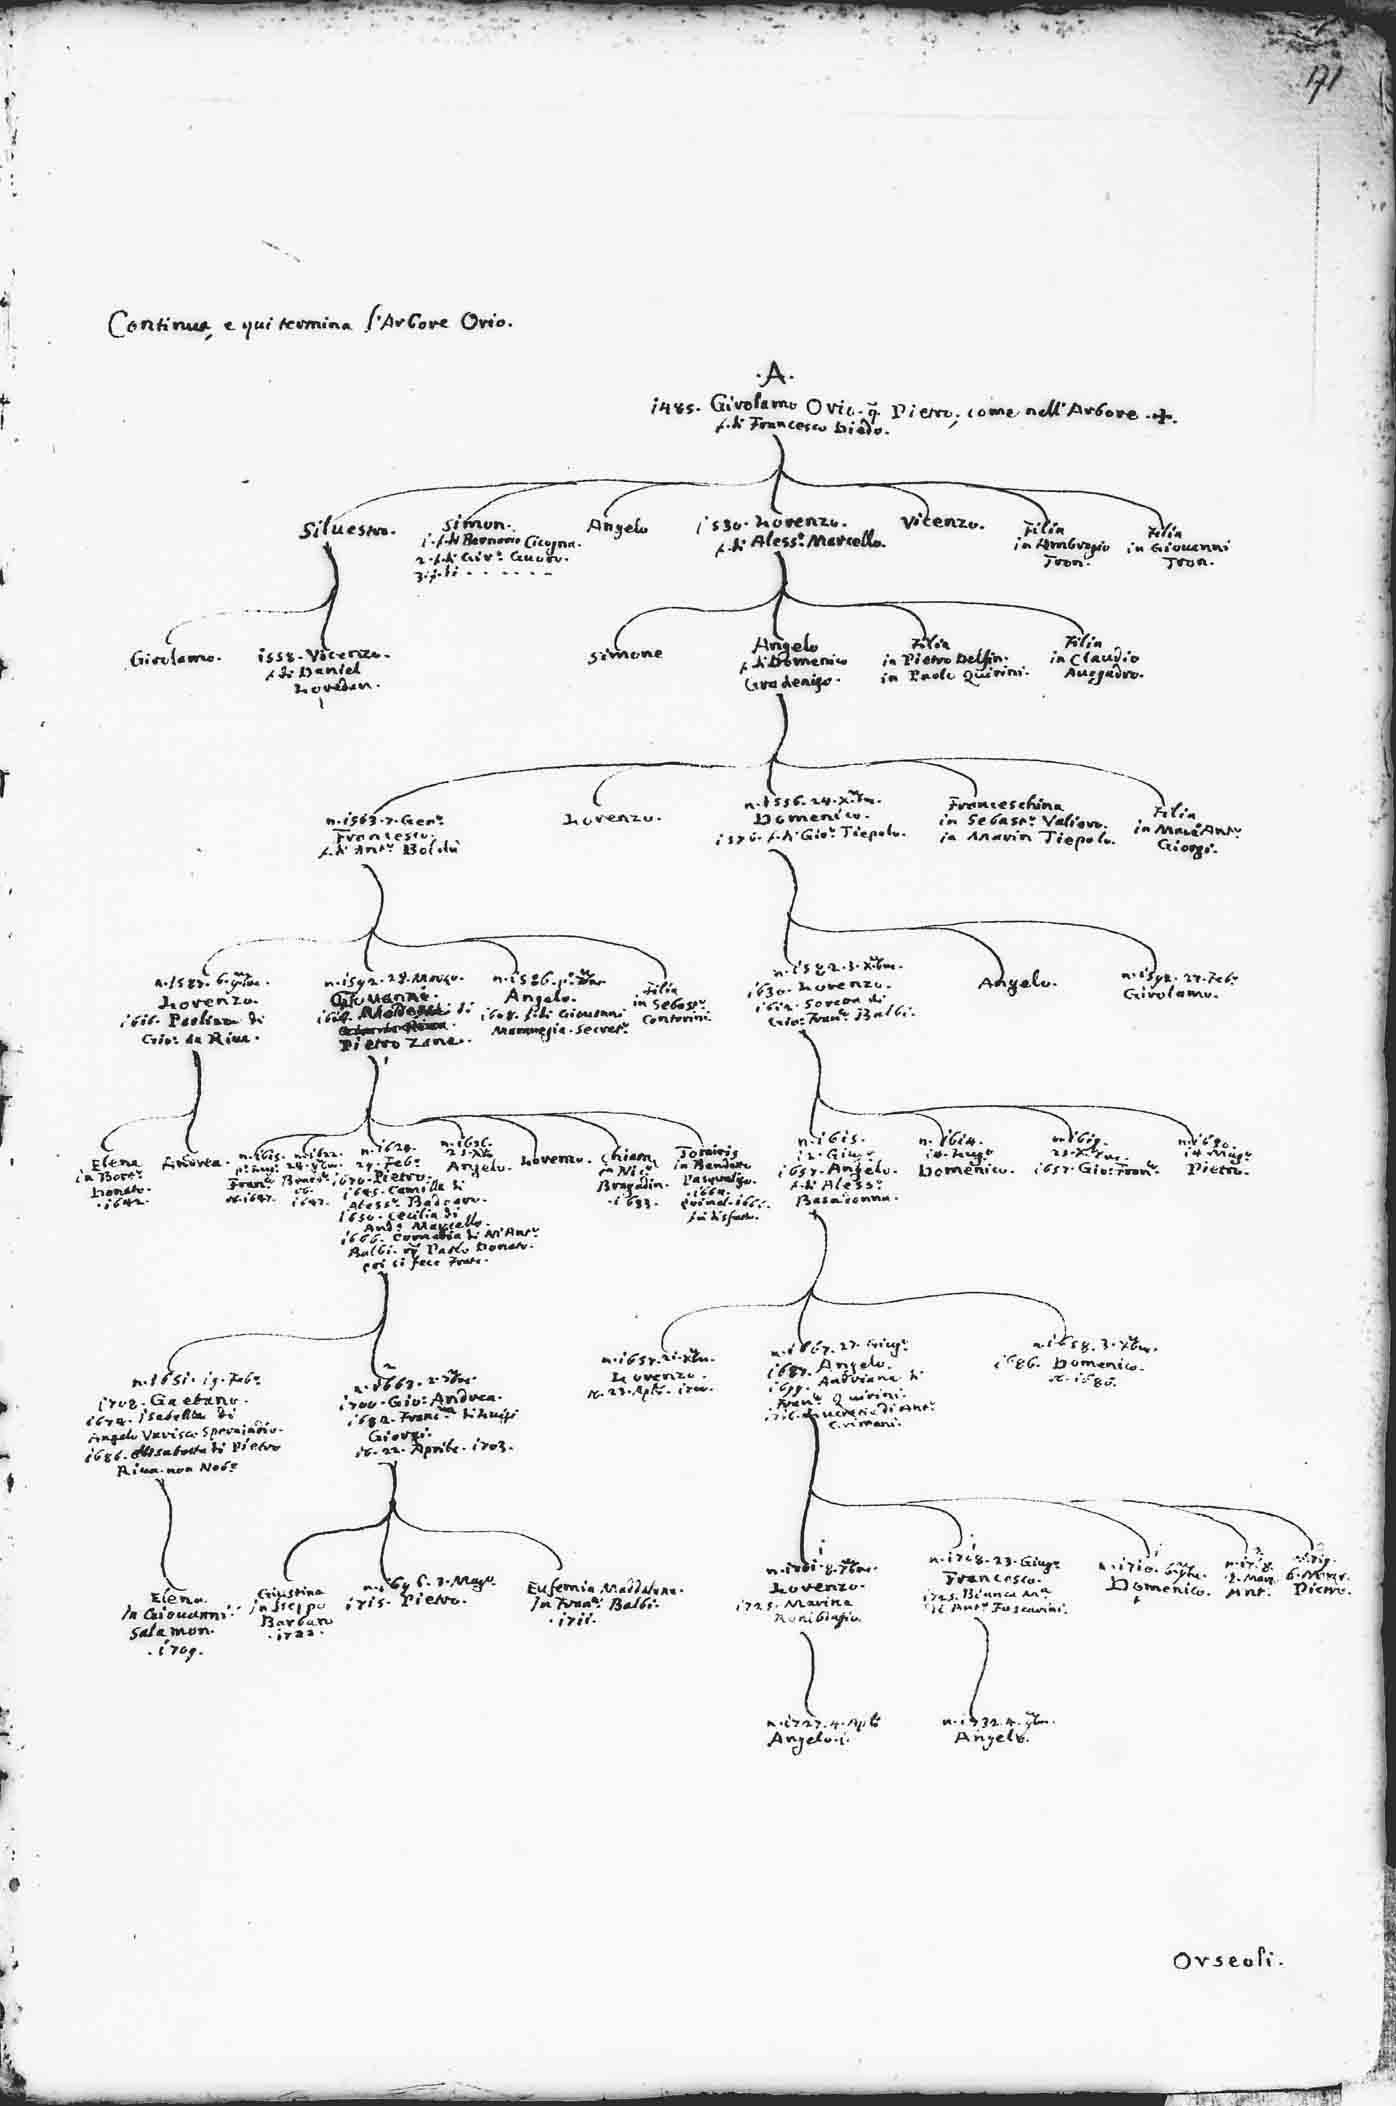 171
Continua, e qui termina l'Arbore Orio.
.A.
1485. Girolamo Orio. q̃ Pietro, come nell'Arbore .+.
f. di Francesco Diedo.
Siluestro.
Simon.
1. f. di Bernardo Cicogna.
2. f. di Gir.º
3. f. di . . . . . .
Angelo
1530. Lorenzo.
f. di Aless.º Marcello.
Vicenzo.
Filia
in Ambrogio
Tron.
Filia
in Giouanni
Tron.
Girolamo.
1558. Vicenzo.
f. di Daniel
Loredan.
Simone
Angelo
f. di Domenico
Gradenigo.
Filia
in Pietro Delfin.
in Paolo Querini.
Filia
in Claudio
Auogadro.
n. 1563. 7. Gen.º
Francesco.
f. di Ant.º Boldù
Lorenzo.
n. 1556. 24. Xbre.
Domenico.
1576. f. di Gio: Tiepolo.
Franceschina
in Sebast.º Valiero.
in Marin Tiepolo.
Filia
in Marc'Ant.º
Giorgi.
n. 1587. 6.
Lorenzo.
1616. Paolina di
Gio: da Riua.
n. 1592. 28. Marzo.
Giouanni.
di
Pietro Zane.
n. 1586. p.º
Angelo.
1608. f. di Giouanni
Marauegia. Secret.º
Filia
in Sebast.º
Contarini.
n. 1582. 3. Xbre.
1630. Lorenzo.
1612. di
Gio: Fran.º Balbi.
Angelo.
n. 1592. 27. Feb.º
Girolamo.
Elena
in Bort.º
Donato.
. 1642.
Andrea.
n. 1615.
Fran.º
ob. 1647.
n. 1622.
ob.
1647.
n. 1624.
27. Feb.º
1670. Pietro.
1645. Camilla di
Aless.º Badoaro.
1650. Cecilia di
And.º Marcello.
1666. Cornelia di M'Ant.º
Balbi. q̃ Paolo Donato.
poi si fece Frate.
n. 1636.
Angelo.
Lorenzo.
Chiara
in Nic.º
Bragadin.
. 1633.
in Benedetto
Pasqualigo.
n. 1615.
12. Giug.º
1657. Angelo.
f. di Aless.º
Basadonna.
+
n. 1614.
Domenico.
n. 1619.
23. Xbre.
1657. Gio: Fran.º
n. 1630.
14. Mag.º
Pietro.
n. 1651. 19. Feb.º
1708. Gaetano.
1674. Isabella di
1686. Elisabetta di Pietro
Riua. non Nob.º
n. 1663. 2.
1700. Gio: Andrea.
1682. Franc.ª di Luigi
Giorgi.
ob. 22. Aprile. 1703.
n. 1657. 21. Xbre.
Lorenzo.
ob. 23. Apr.º 1700.
n. 1667. 27. Giug.º
1687. Angelo.
1699. Andriana di
Fran.º Quirini.
1716. Lucrezia di Ant.º
Grimani.
n. 1658. 3. Xbre.
1686. Domenico.
ob. 1686.
Elena.
in Giouanni
Salamon.
. 1709.
Giustina
in Iseppo
Barbaro
. 1722.
n. 1696. 3. Mag.º
1715. Pietro.
Eufemia Maddalena.
in Fran.º Balbi.
. 1711.
n. 1701. 8.
Lorenzo.
1725. Marina
n. 1708. 23. Giug.º
Francesco.
1725. Bianca M.ª
di Ant.º Foscarini.
n. 1710. 6.
Domenico.
+
Ant.º
Pietro.
n. 1727. 4. Apr.º
Angelo. 1.
n. 1732. 4.
Angelo.
Orseoli.